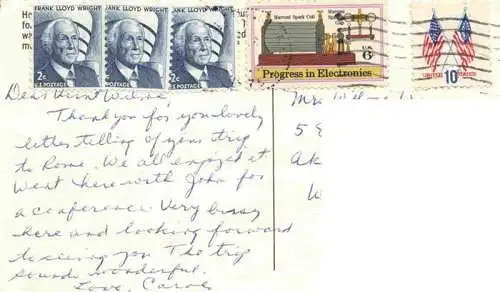 FRANK LLOYD WRIGHT
2c
U.S. POSTAGE
FRANK LLOYD WRIGHT
2c
U.S. POSTAGE
FRANK LLOYD WRIGHT
2c
U.S. POSTAGE
Marconi Spark Coil
Marconi's Spark
U.S.
6c
Progress in Electronics
UNITED STATES
10c
Dear Aunt Wilma,
Thank you for your lovely
letter telling of your trip
to Rome. We all enjoyed it.
Went here with John for
a conference. Very busy
here and looking forward
to seeing you. The trip
sounds wonderful.
Love, Carol
Mrs
5
Ak
W